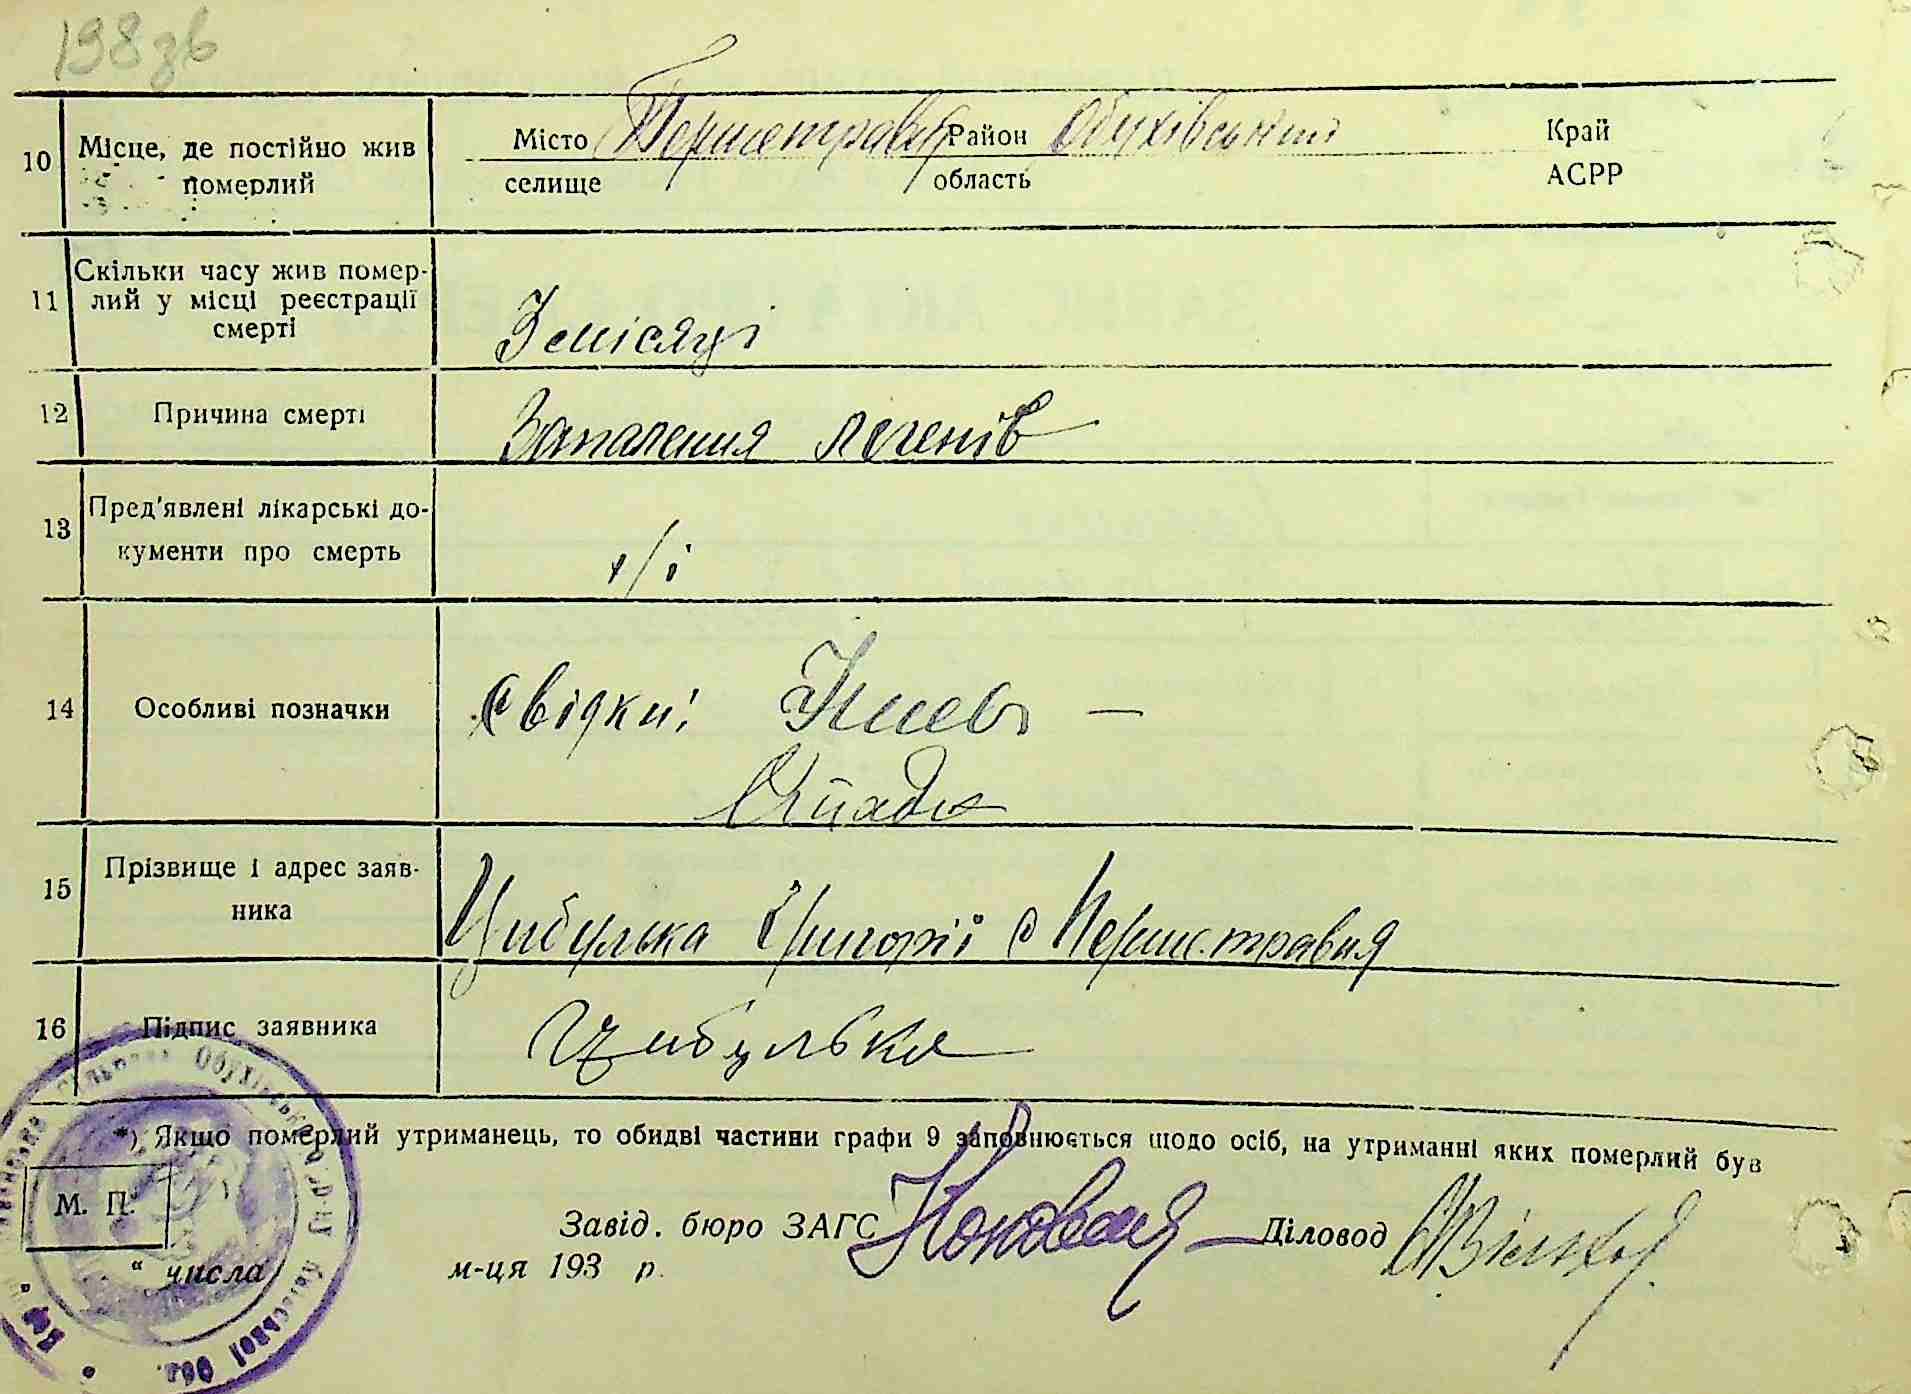 198 зв
10 Місце, де постійно жив
померлий
Місто Першетравня Район Обухівський Край
селище область АСРР
11 Скільки часу жив помер-
лий у місці реєстрації
смерті
3 місяці
12 Причина смерті Запалення легенів
13 Пред'явлені лікарські до-
кументи про смерть
14 Особливі позначки
свідки:
15 Прізвище і адрес заяв-
ника
Цибулька Григорій с Першетравня
16 Підпис заявника Цибулька
*) Якщо померлий утриманець, то обидві частини графи 9 заповнюється щодо осіб, на утриманні яких померлий був
М. П.
Завід. бюро ЗАГС Діловод
" числа м-ця 193 р.
Обухівського Р-ну Київської Обл.